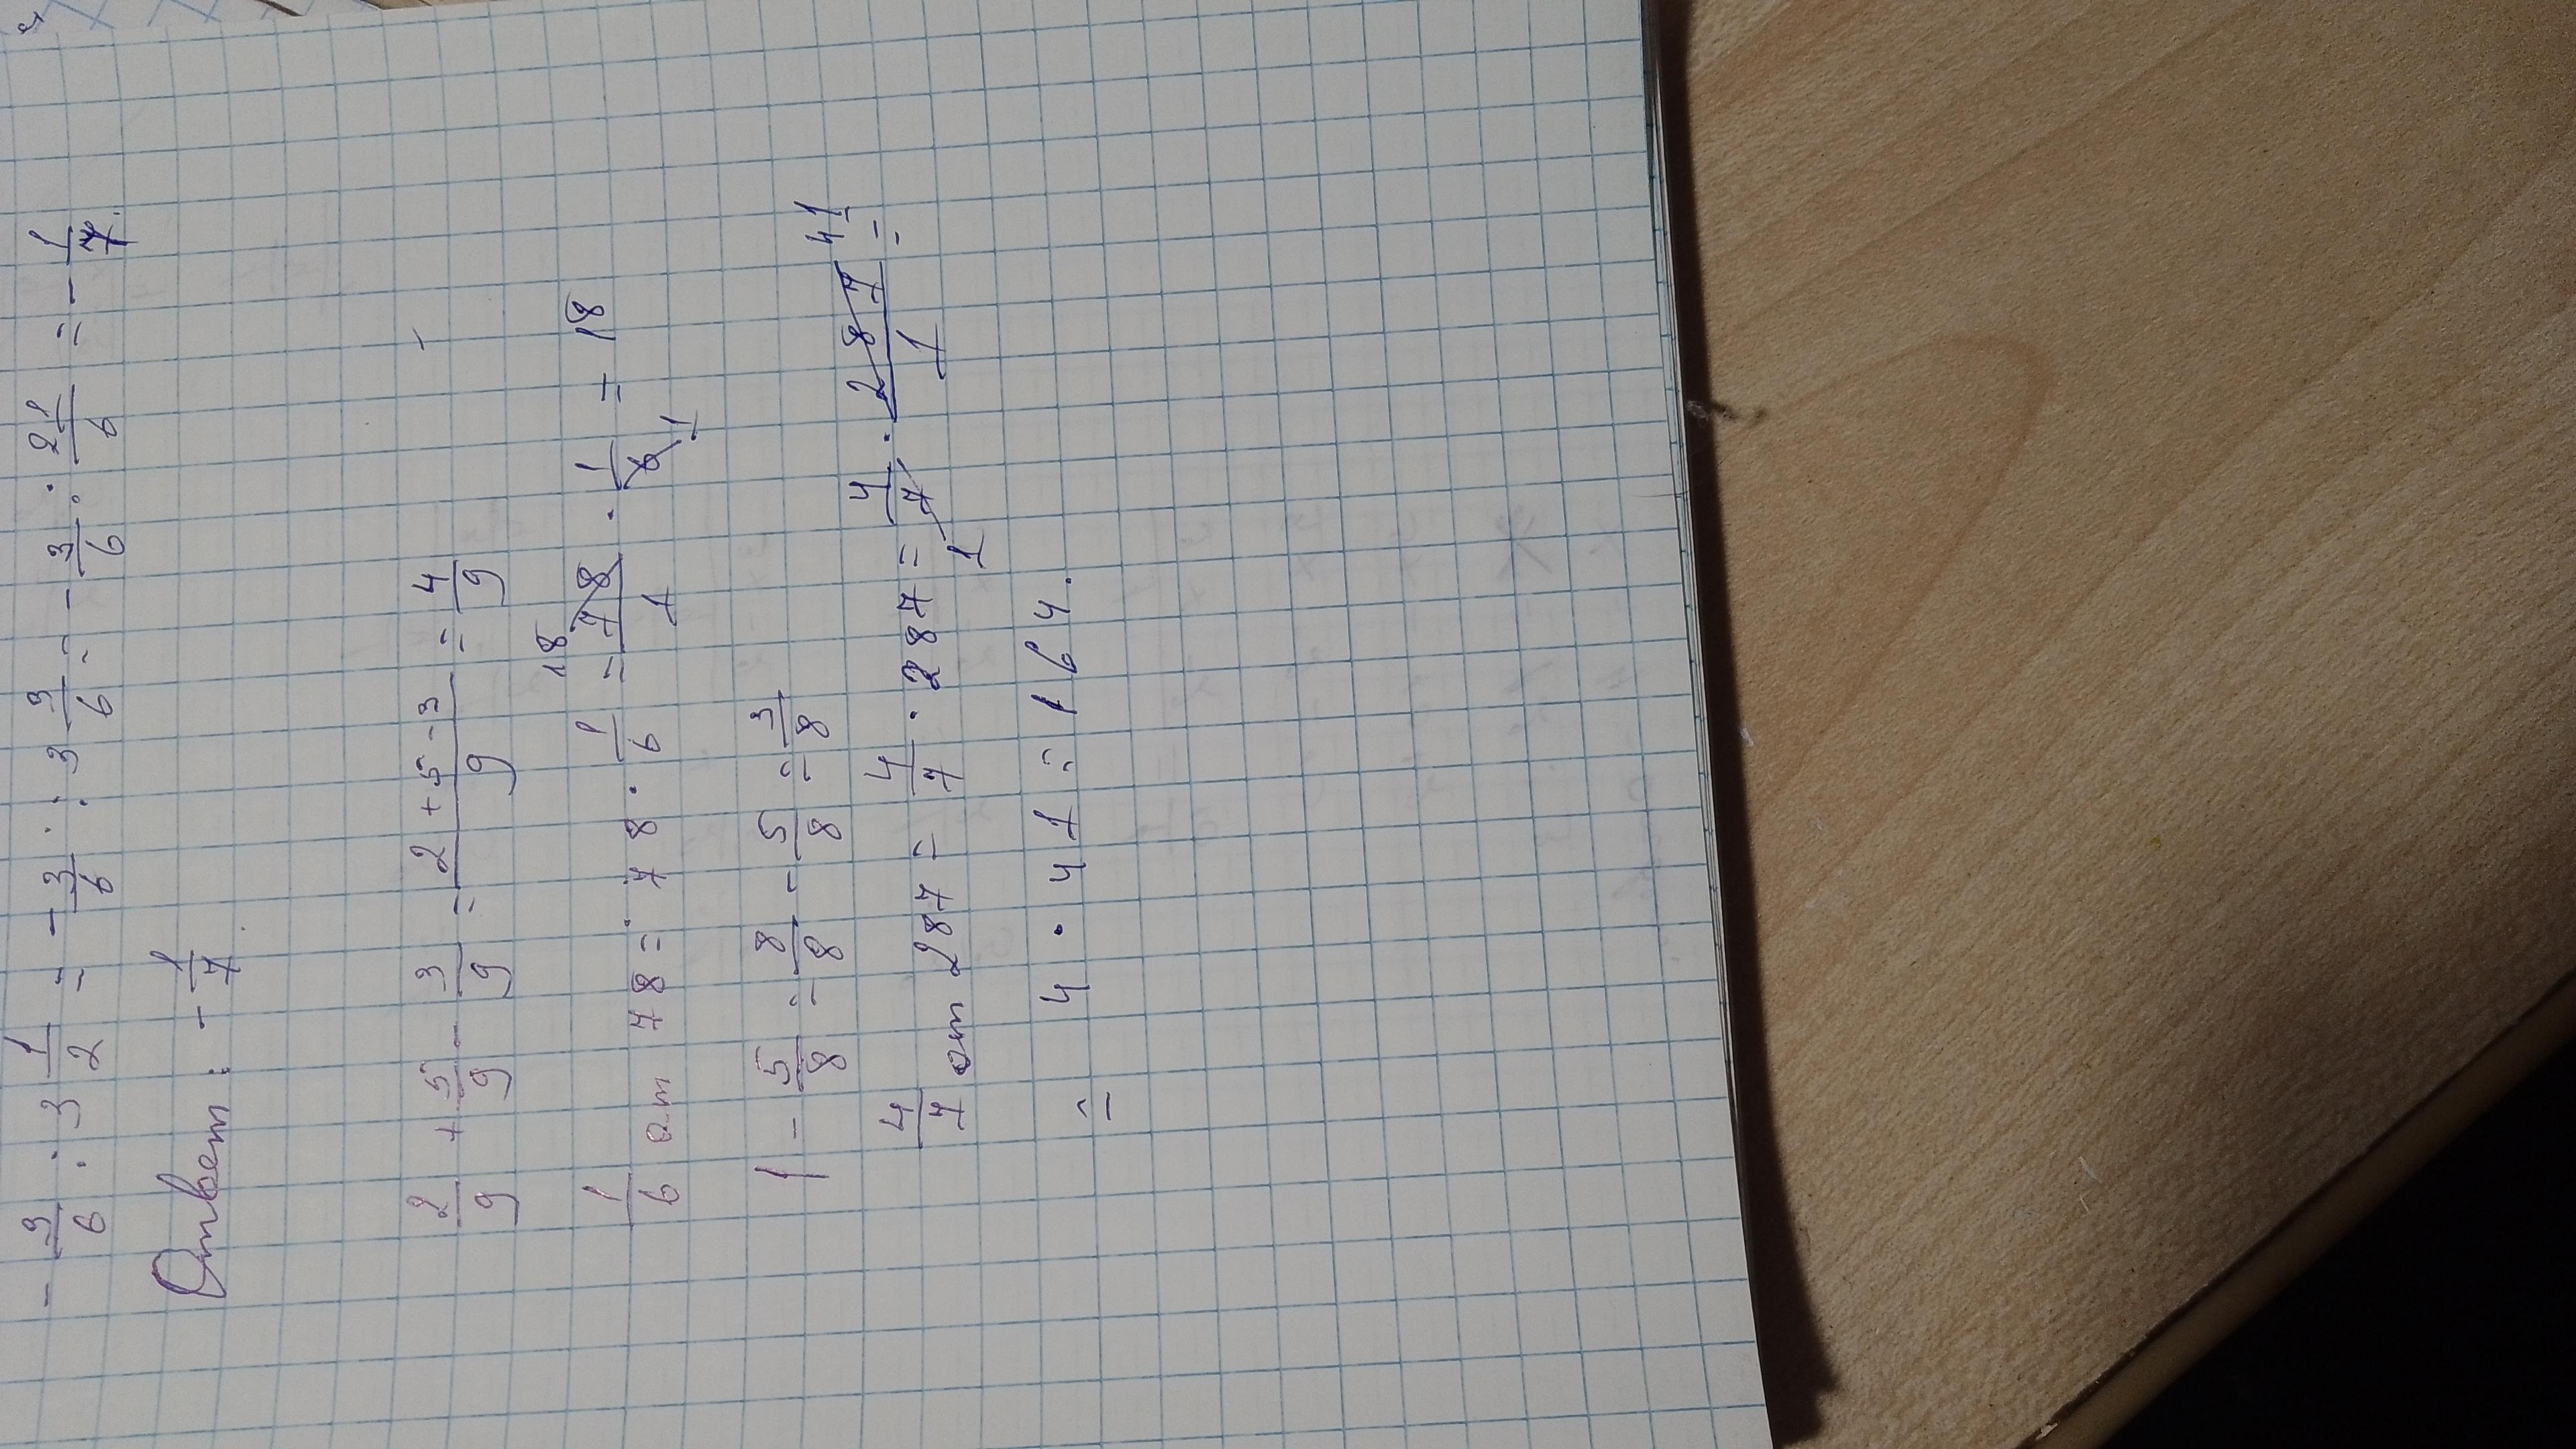 - 3/6 : 3 1/2 = - 3/6 : 3 3/6 = - 3/6 : 21/6 = - 1/7.
Ответ: - 1/7.
2/9 + 5/9 - 3/9 = 2+5-3/9 = 4/9
1/6 от 78 = 78 · 1/6 = 78/1 · 1/6 = 18
18 1
1 - 5/8 = 8/8 - 5/8 = 3/8
4/7 от 287 = 4/7 · 287 = 4/7 · 287/1 =
1 41
= 4 · 41 = 164.